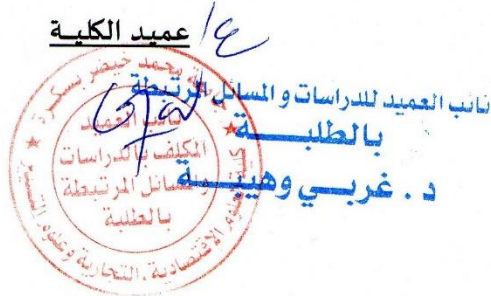 ع/ عميد الكليـة
نائب العميد للدراسات و المسائل المرتبطة
بالطلبـــــة
د . غربـــي وهيبـــة
جامعة محمد خيضر بسكرة
نائب العميد
المكلف بالدراسات
والمسائل المرتبطة
بالطلبة
كلية العلوم الاقتصادية ، التجارية وعلوم التسيير